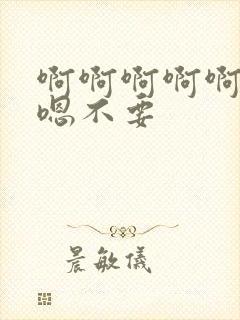 啊啊啊啊啊
嗯不要
晨敏儀